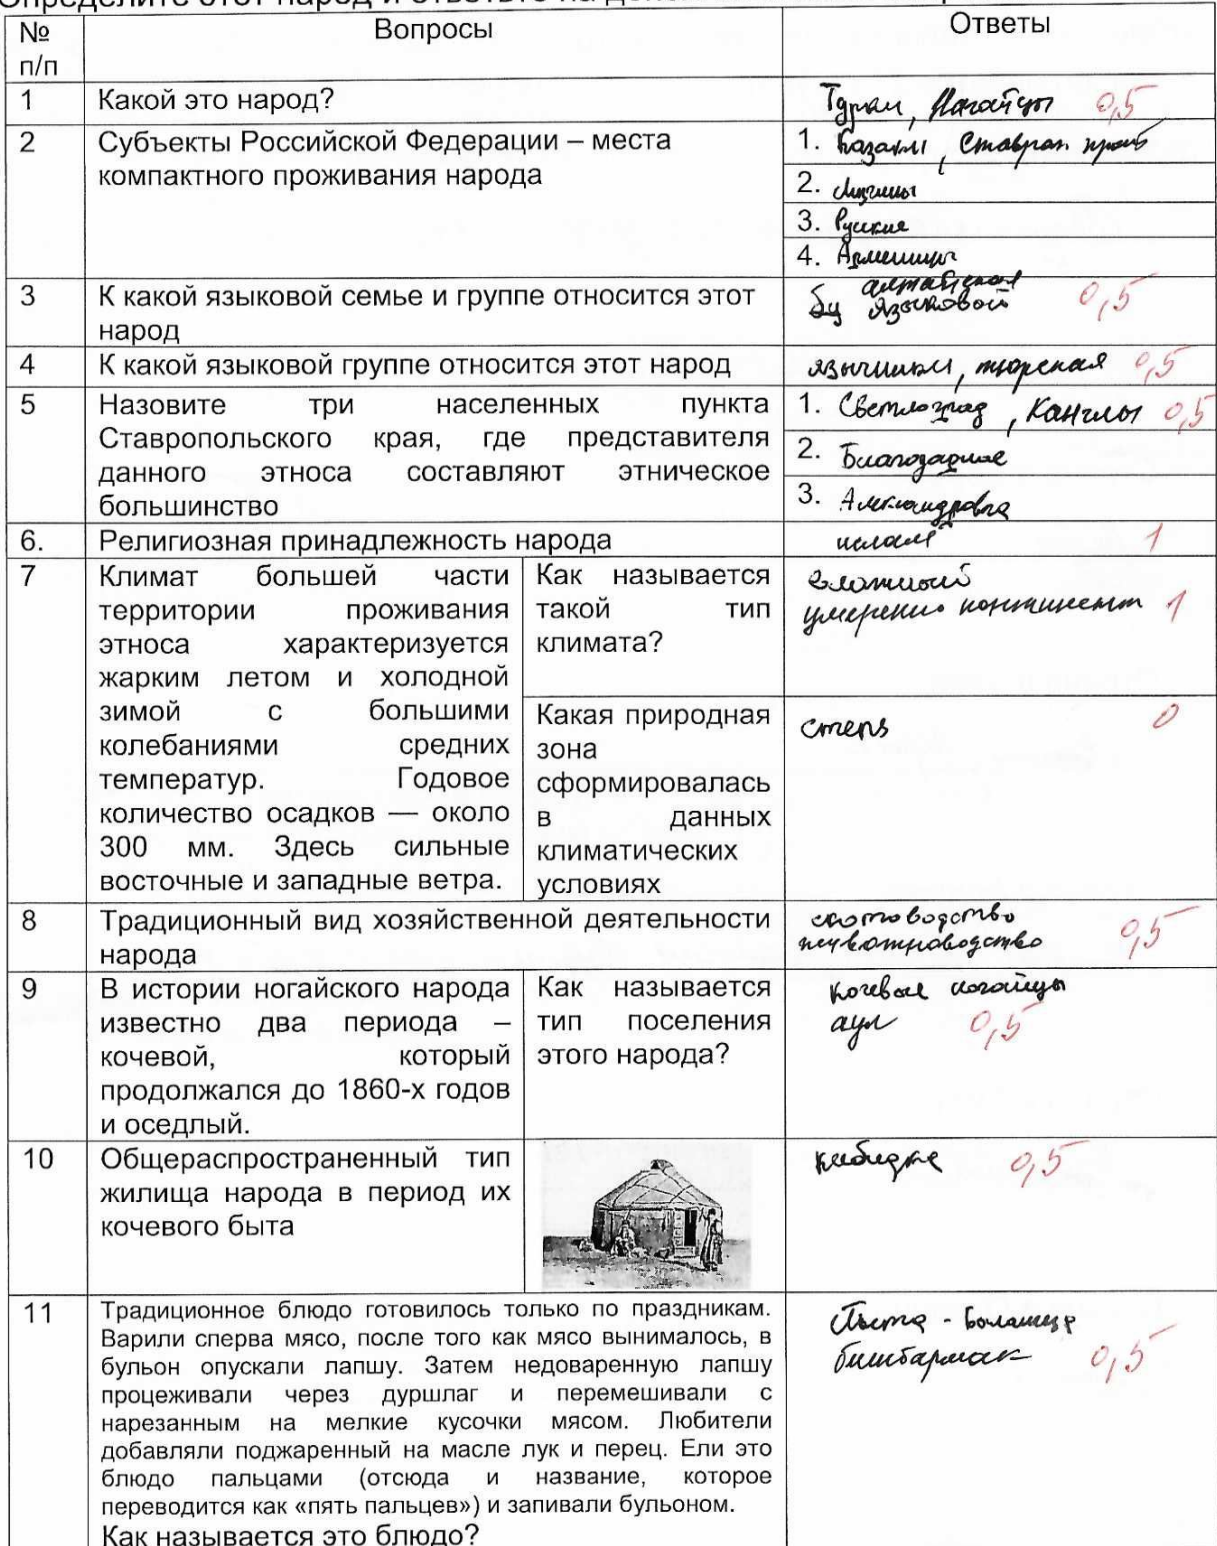 Определите этот народ и ответьте на
№
п/п
Вопросы
Ответы
1
Какой это народ?
Турки, Ногайцы 0,5
2
Субъекты Российской Федерации – места
компактного проживания народа
1. Казаки, Ставроп. край
2.
3. Русские
4. Армяницы
3
К какой языковой семье и группе относится этот
народ
алтайская
языковой 0,5
4
К какой языковой группе относится этот народ
язычники, тюрская 0,5
5
Назовите три населенных пункта
Ставропольского края, где представителя
данного этноса составляют этническое
большинство
1. Светлоград, Канглы 0,5
2. Благодарное
3. Александровка
6.
Религиозная принадлежность народа
ислам 1
7
Климат большей части
территории проживания
этноса характеризуется
жарким летом и холодной
зимой с большими
колебаниями средних
температур. Годовое
количество осадков — около
300 мм. Здесь сильные
восточные и западные ветра.
Как называется
такой тип
климата?
влажный
умеренно континент 1
Какая природная
зона
сформировалась
в данных
климатических
условиях
степь 0
8
Традиционный вид хозяйственной деятельности
народа
скотоводство
животноводство 0,5
9
В истории ногайского народа
известно два периода –
кочевой, который
продолжался до 1860-х годов
и оседлый.
Как называется
тип поселения
этого народа?
кочевые ногайцы
аул 0,5
10
Общераспространенный тип
жилища народа в период их
кочевого быта
кибидка 0,5
11
Традиционное блюдо готовилось только по праздникам.
Варили сперва мясо, после того как мясо вынималось, в
бульон опускали лапшу. Затем недоваренную лапшу
процеживали через дуршлаг и перемешивали с
нарезанным на мелкие кусочки мясом. Любители
добавляли поджаренный на масле лук и перец. Ели это
блюдо пальцами (отсюда и название, которое
переводится как «пять пальцев») и запивали бульоном.
Как называется это блюдо?
Паста -
бишбармак 0,5